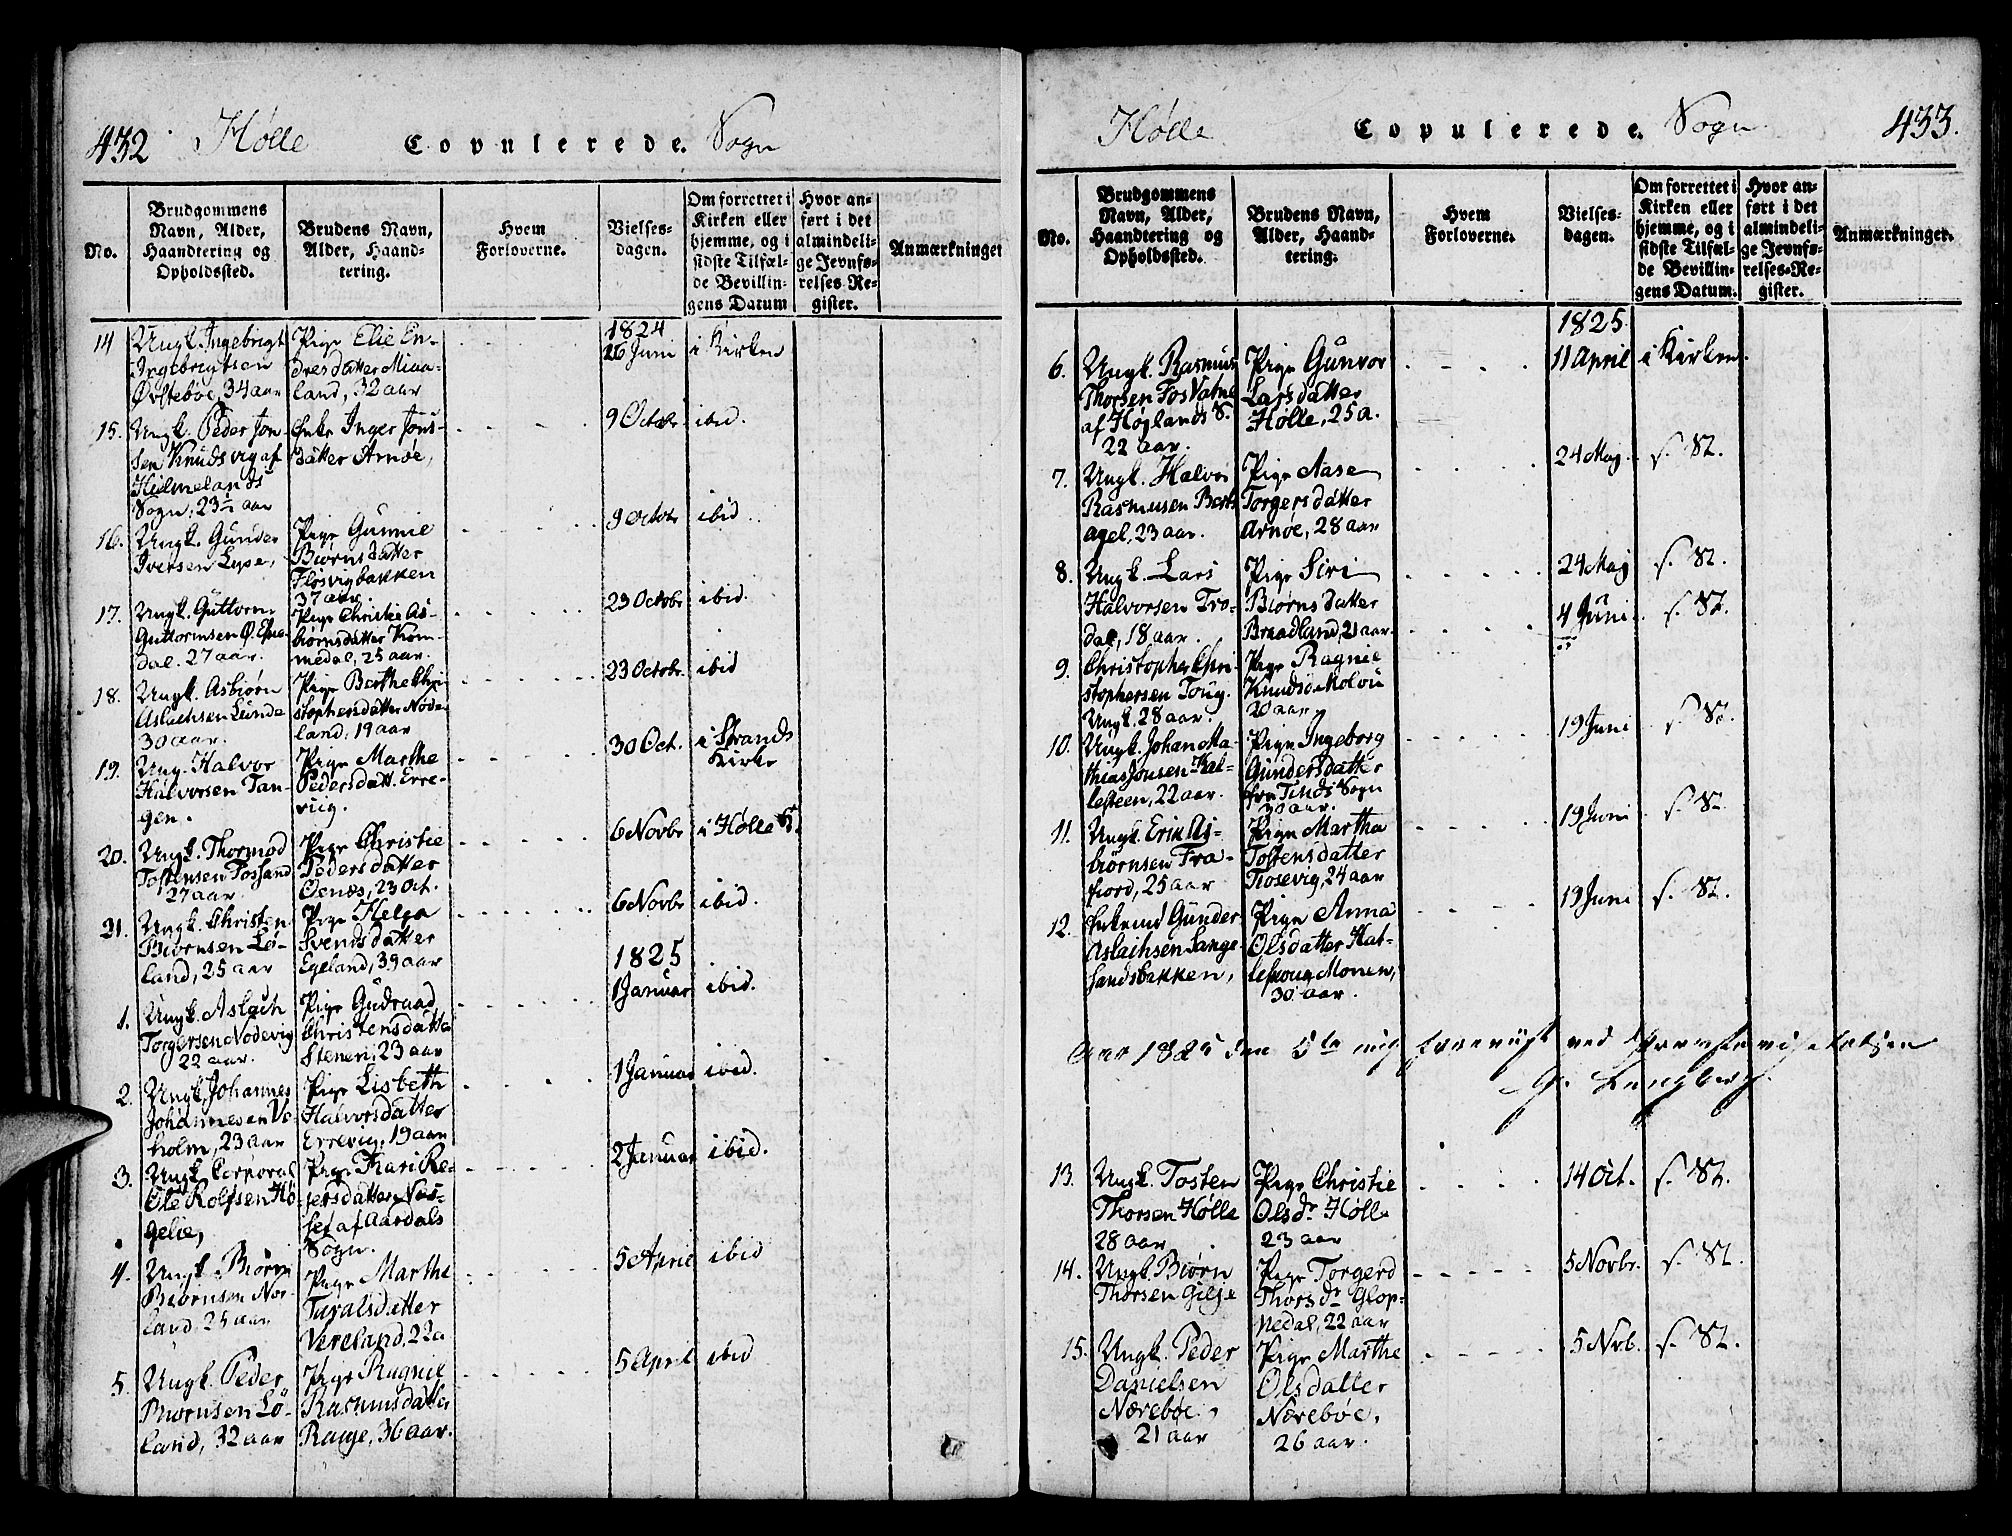 432 Hølle Copulerede. Sogn
No.
Brudgommens
Navn, Alder,
Haandtering og
Opholdssted.
Brudens Navn,
Alder, Haand-
tering.
Hvem
Forloverne.
Vielses-
dagen.
Om forrettet i
Kirken eller
hjemme, og i
sidste Tilfæl-
de Bevillin-
gens Datum
Hvor an-
ført i det
almindeli-
ge Jevnfø-
relses-Re-
gister.
Anmærkninger
14
Ungk. Ingebrigt
Ingebrigtsen
Østebøe, 34 aar
Pige Elie En-
dresdatter Miaa-
land, 32 aar
1824
26 Juni
i Kirken
15.
Ungk. Peder Jon-
sen Knudsvig af
Hielmelands
Sogn, 23½ aar
Enke Inger Jons-
Datter Arnøe,
9 Octobr
ibid.
16.
Ungk. Gunder
Iversen Lyse,
Pige Gunnie
Biørnsdatter
Fløsvigbakken
37 aar.
9 Octobr
ibid.
17.
Ungk. Guttorm
Guttormsen Ø. Espe-
dal. 27 aar.
Pige Christie As-
biørnsdatter Kom-
medal, 25 aar.
23 Octobr
ibid.
18.
Ungk. Asbiørn
Aslachsen Lunde
30 aar.
Pige Berthe Chri-
stophersdatter Node-
land, 19 aar
23 Octobr.
ibid
19.
Ung. Halvor
Halvorsen Tan-
gen.
Pige Marthe
Pedersdatt. Erre-
viig.
30 Oct.
i Strands
Kirke
20.
Ungk. Thormod
Tostensen Fossand
27 aar.
Pige Christie
Pedersdatter
Oenæs, 23 Oct.
6 Novbr
i Hølle K.
21.
Ungk. Christen
Biørnsen Lø-
land, 25 aar
Pige Helga
Svendsdatter
Egeland, 39 aar
6 Novbr
ibid.
1825
1.
Ungk. Aslach
Torgersen Nodevig
22 aar.
Pige Gudraad
Christensdatter
Stenen, 23 aar
1 Januar
ibid.
2.
Ungk. Johannes
Johannesen Ve-
holm, 23 aar
Pige Lisbeth
Halvorsdatter
Errevig, 19 aar
1 Januar
ibid.
3.
Ungk. Corporal
Ole Rolfsen Hø-
gelie,
Pige Kari Re-
jersdatter
af Aardals
Sogn.
2 Januar
ibid.
4.
Ungk. Biørn
Biørnsen Nor-
land, 25 aar
Pige Marthe
Taralsdatter
Vereland, 22 a
5 April
ibid
5.
Ungk. Peder
Biørnsen Lø-
land, 32 aar
Pige Ragnie
Rasmusdatter
Rauge, 36 aar.
5 April
ibid
Hølle Copulerede. Sogn. 433.
No.
Brudgommens
Navn, Alder,
Haandtering og
Opholdssted.
Brudens Navn,
Alder, Haand-
tering.
Hvem
Forloverne.
Vielses-
dagen.
Om forrettet i
Kirken eller
hjemme, og i
sidste Tilfæl-
de Bevillin-
gens Datum.
Hvor an-
ført i det
almindeli-
ge Jevnfø-
relses-Re-
gister.
Anmærkninger.
1825.
6.
Ungk. Rasmus
Thorsen Fos Vatne
af Højlands S.
22 aar.
Pige Gunvor
Larsdatter
Hølle, 25 a.
11 April
i Kirken.
7.
Ungk. Halvor
Rasmusen Berts
agel, 23 aar.
Pige Aase
Torgersdatter
Arnøe, 28 aar
24 Maj
s. St.
8.
Ungk. Lars
Halvorsen Tro-
dal, 18 aar.
Pige Siri
Biørnsdatter
Bradland, 21 aar.
24 Maj
s. St.
9.
Christopher Chri-
stophersen Toug.
Ungk. 28 aar.
Pige Ragnie
20 aar
4 Juni
s. St.
10.
Ungk. Johan Ma-
thias Jonsen Kal-
lesteen, 22 aar.
Pige Ingeborg
Gundersdatter
fra Tinds Sogn
30 aar.
19 Juni
s. St.
11.
Ungk. Erik As-
biørnsen Fra-
fiord, 25 aar
Pige Martha
Tostensdatter
Tiosevig, 24 aar
19 Juni
s. St.
12.
Enkemd Gunder
Aslachsen Lange-
sandsbakken,
Pige Anna
Olsdatter Hat-
leskoug Monen,
30 aar.
19 Juni
s. St.
Aar 1825 den 5te mig foreviist ved Provstevisitatsen
G. Lungberg.
13.
Ungk. Tosten
Thorsen Hølle
28 aar
Pige Christie
Olsdr Hølle
23 aar
14 Oct.
s. St.
14.
Ungk. Biørn
Thorsen Gilje
Pige Torgerd
Thorsdr Glop-
pedal, 22 aar
5 Novbr.
s. St.
15.
Ungk. Peder
Danielsen
Nærebøe,
21 aar
Pige Marthe
Olsdatter
Nærebøe,
26 aar.
5 Novb.
s. St.